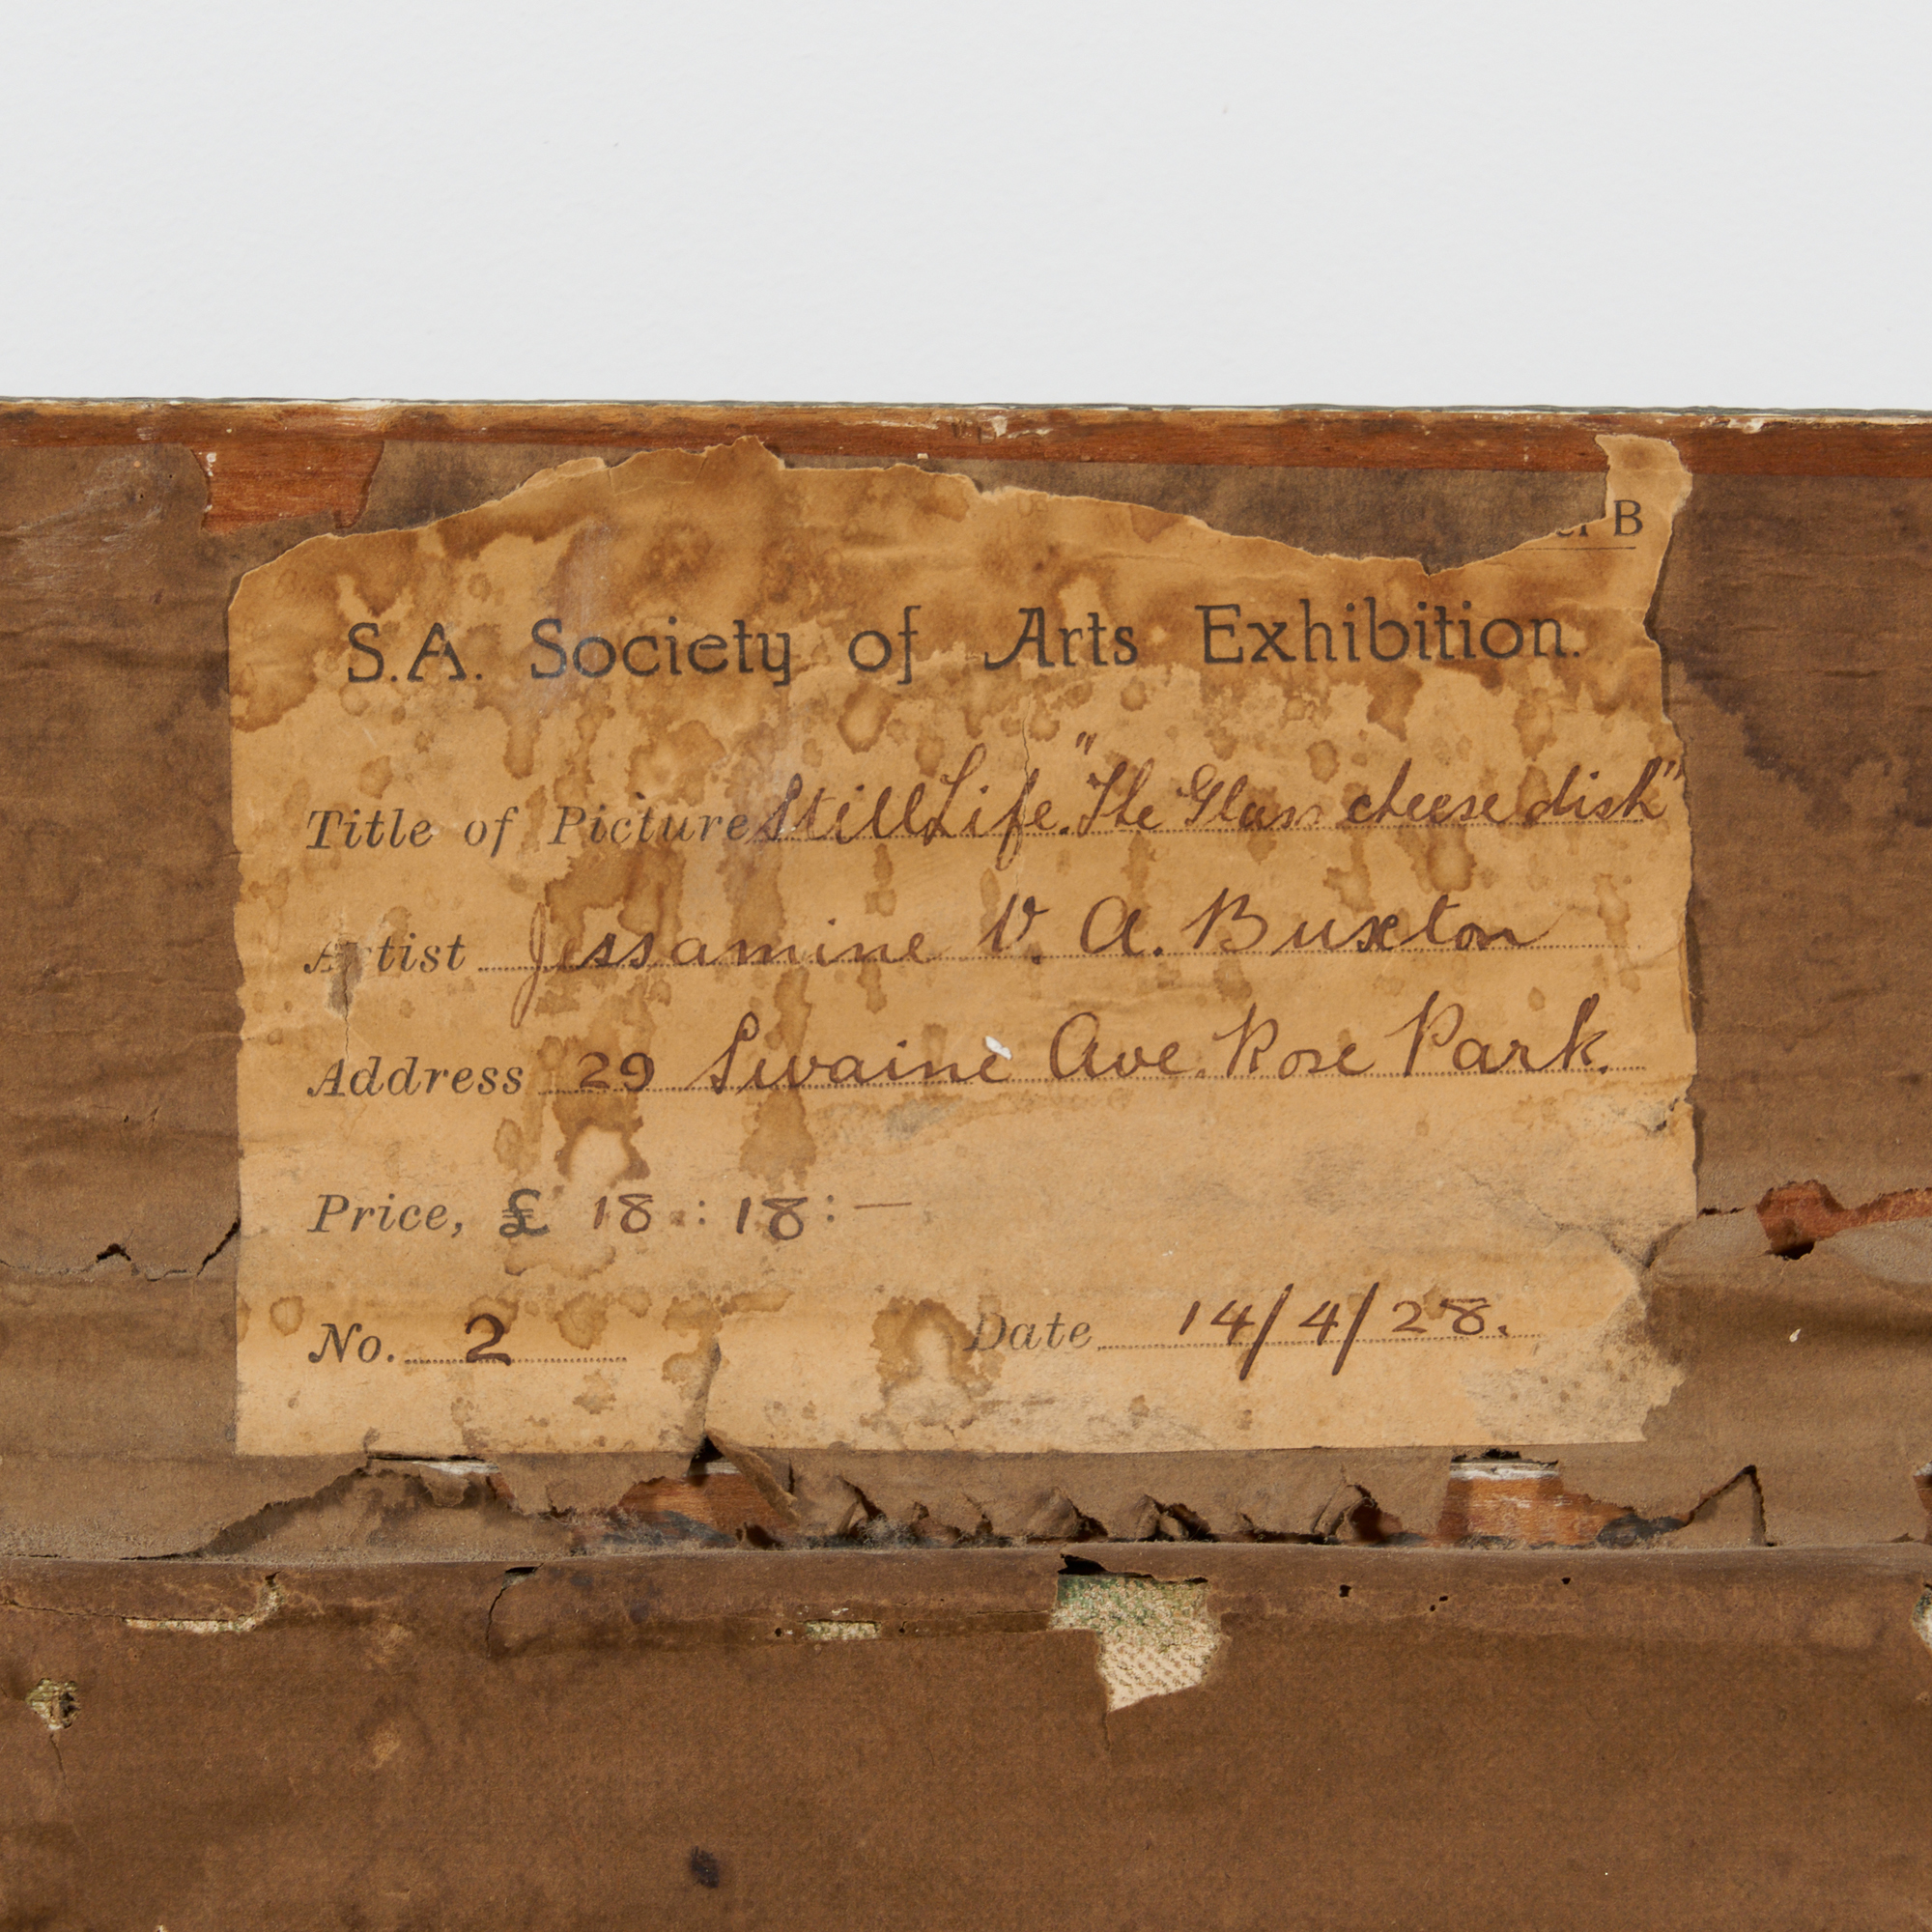 B
S.A. Society of Arts Exhibition.
Title of Picture Still Life. "The Glass cheese dish"
Artist Jessamine V. A. Buxton
Address 29 Swaine Ave. Rose Park.
Price, £ 18 : 18 : —
No. 2 Date 14/4/28.